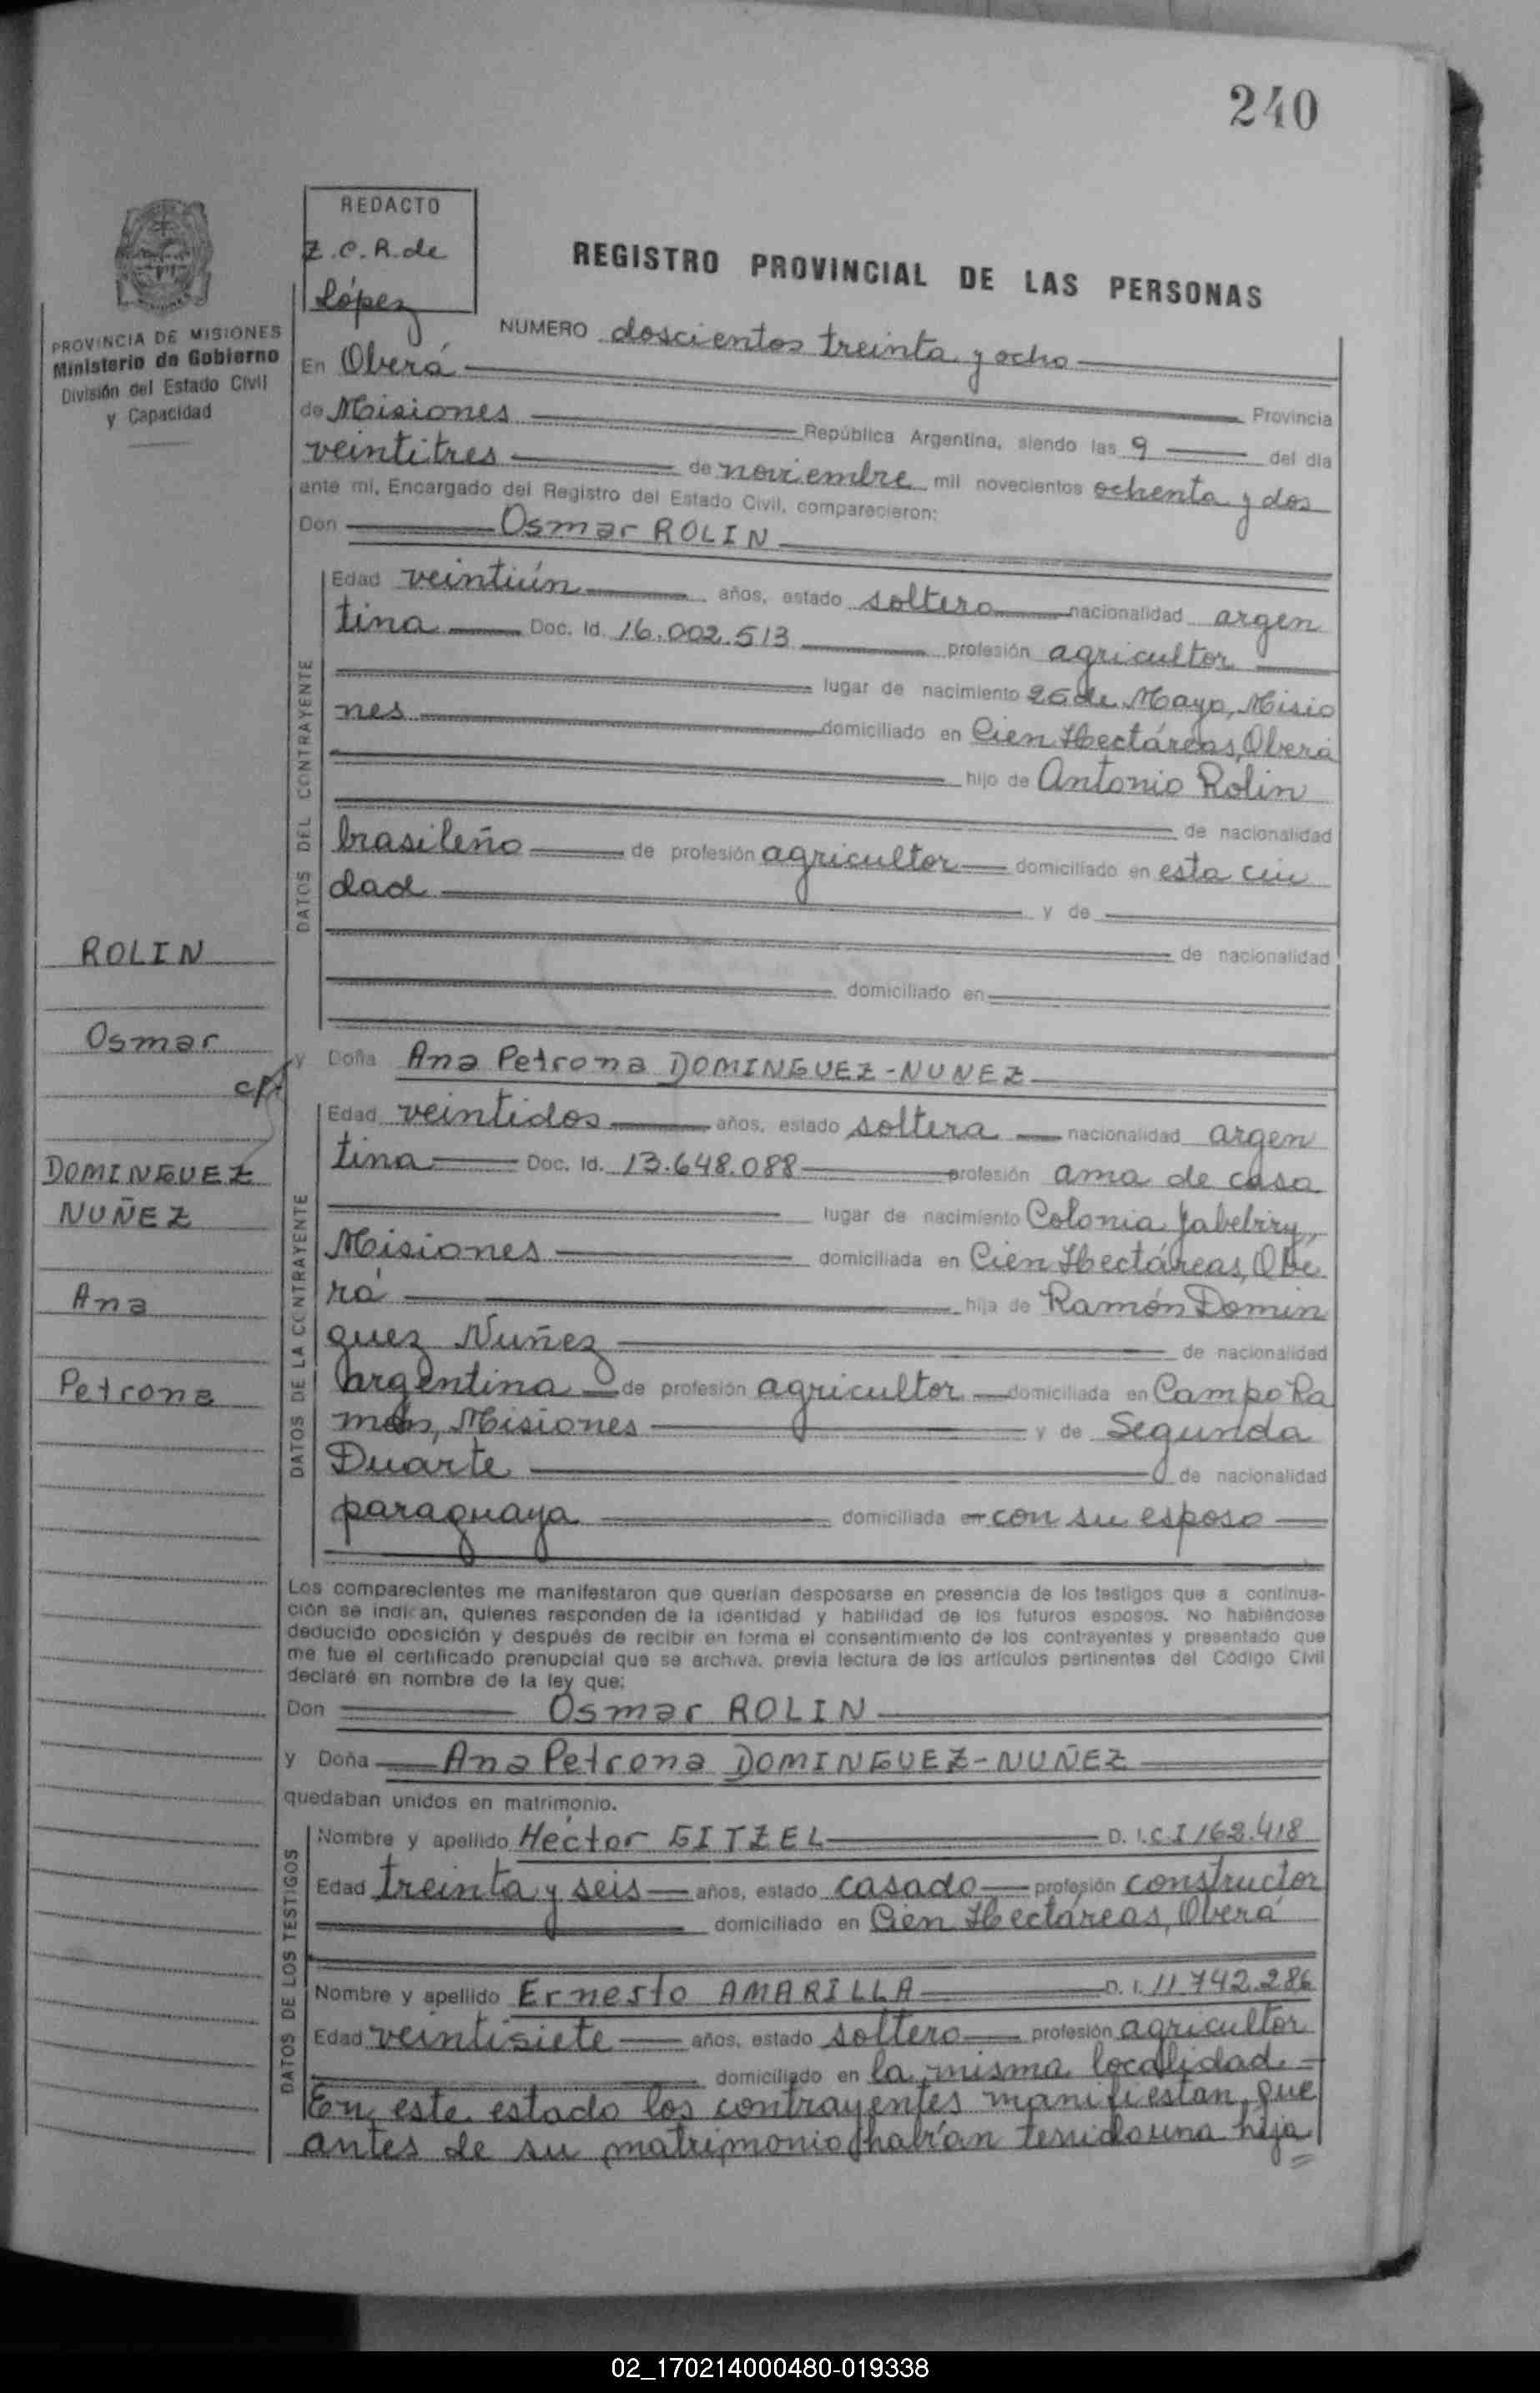 240
REDACTO
Z.C.R. de
López
REGISTRO PROVINCIAL DE LAS PERSONAS
PROVINCIA DE MISIONES
Ministerio de Gobierno
División del Estado Civil
y Capacidad
NUMERO doscientos treinta y ocho
En Oberá
Provincia
de Misiones República Argentina, siendo las 9 del día
veintitres de noviembre mil novecientos ochenta y dos
ante mí, Encargado del Registro del Estado Civil, comparecieron:
Don Osmar ROLIN
DATOS DEL CONTRAYENTE
Edad veintiún años, estado soltero nacionalidad argen
tina Doc. Id. 16.002.513 profesión agricultor
lugar de nacimiento 25 de Mayo, Misio
nes domiciliado en Cien Hectáreas, Oberá
hijo de Antonio Rolin
de nacionalidad
brasileño de profesión agricultor domiciliado en esta ciu
dad y de
de nacionalidad
domiciliado en
ROLIN
Osmar
c/.
DOMINGUEZ
NUÑEZ
Ana
Petrona
y Doña Ana Petrona DOMINGUEZ-NUNEZ
DATOS DE LA CONTRAYENTE
Edad veintidos años, estado soltera nacionalidad argen
tina Doc. Id. 13.648.088 profesión ama de casa
lugar de nacimiento Colonia Yabebiry,
Misiones domiciliada en Cien Hectáreas, Obe
rá hija de Ramón Domin
guez Nuñez de nacionalidad
argentina de profesión agricultor domiciliada en Campo Ra
món, Misiones y de Segunda
Duarte de nacionalidad
paraguaya domiciliada en con su esposo
Los comparecientes me manifestaron que querían desposarse en presencia de los testigos que a continua-
ción se indican, quienes responden de la identidad y habilidad de los futuros esposos. No habiéndose
deducido oposición y después de recibir en forma el consentimiento de los contrayentes y presentado que
me fue el certificado prenupcial que se archiva, previa lectura de los artículos pertinentes del Código Civil
declaré en nombre de la ley que:
Don Osmar ROLIN
y Doña Ana Petrona DOMINGUEZ-NUÑEZ
quedaban unidos en matrimonio.
DATOS DE LOS TESTIGOS
Nombre y apellido Héctor GITZEL D. I. C.I 162.418
Edad treinta y seis años, estado casado profesión constructor
domiciliado en Cien Hectáreas, Oberá
Nombre y apellido Ernesto AMARILLA D. I. 11.742.286
Edad veintisiete años, estado soltero profesión agricultor
domiciliado en la misma localidad
En este estado los contrayentes manifiestan que
antes de su matrimonio habían tenido una hija
02_170214000480-019338